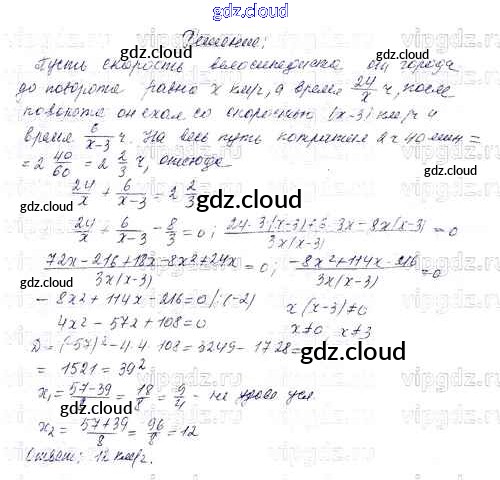 gdz.cloud
Решение:
Пусть скорость велосипедиста от города
до поворота равна x км/ч, а время 24/x ч, после
поворота он ехал со скоростью (x-3) км/ч и
время 6/(x-3) ч. На весь путь потратил 2 ч 40 мин =
= 2 40/60 = 2 2/3 ч, отсюда
24/x + 6/(x-3) = 2 2/3
24/x + 6/(x-3) - 8/3 = 0; (24·3(x-3)+6·3x-8x(x-3))/(3x(x-3)) = 0
(72x-216+18x-8x²+24x)/(3x(x-3)) = 0; (-8x²+114x-216)/(3x(x-3)) = 0
-8x²+114x-216=0 |:(-2) x(x-3)≠0
4x²-57x+108=0 x≠0 x≠3
D=(-57)²-4·4·108=3249-1728=
= 1521 = 39²
x₁ = (57-39)/8 = 18/8 = 9/4 - не удовл. усл.
x₂ = (57+39)/8 = 96/8 = 12
Ответ: 12 км/ч.
gdz.cloud